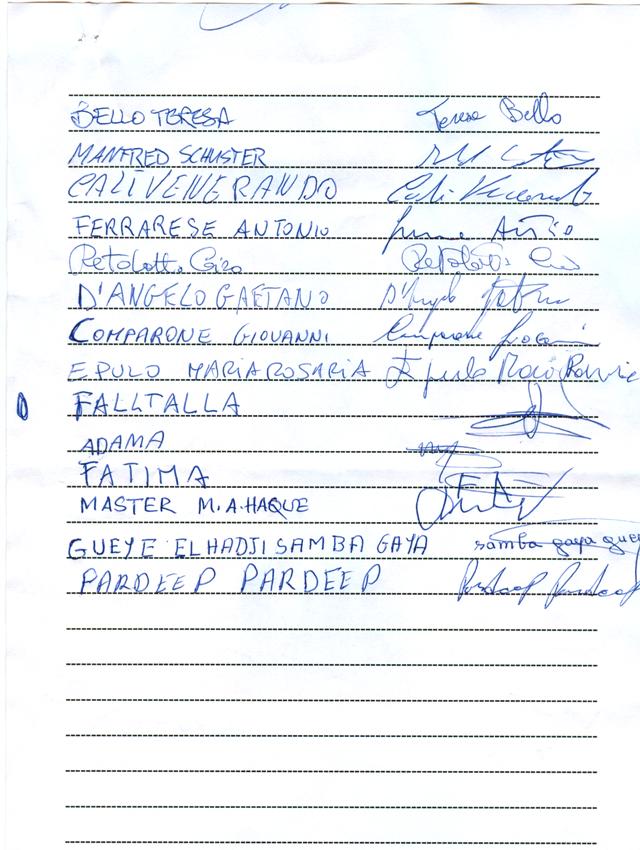 BELLO TERESA Terese Bello
MANFRED SCHUSTER
CALI VENERANDO Cali Venerando
FERRARESE ANTONIO
Ciro Ciro
D'ANGELO GAETANO D'Angelo
COMPARONE GIOVANNI Comparone Giovanni
EPULO MARIAROSARIA Epulo Maria
FALLTALLA
ADAMA
FATIMA FA
MASTER M.A.HAQUE
GUEYE ELHADJI SAMBA GAYA samba gaya guey
PARDEEP PARDEEP Pardeep Pardeep